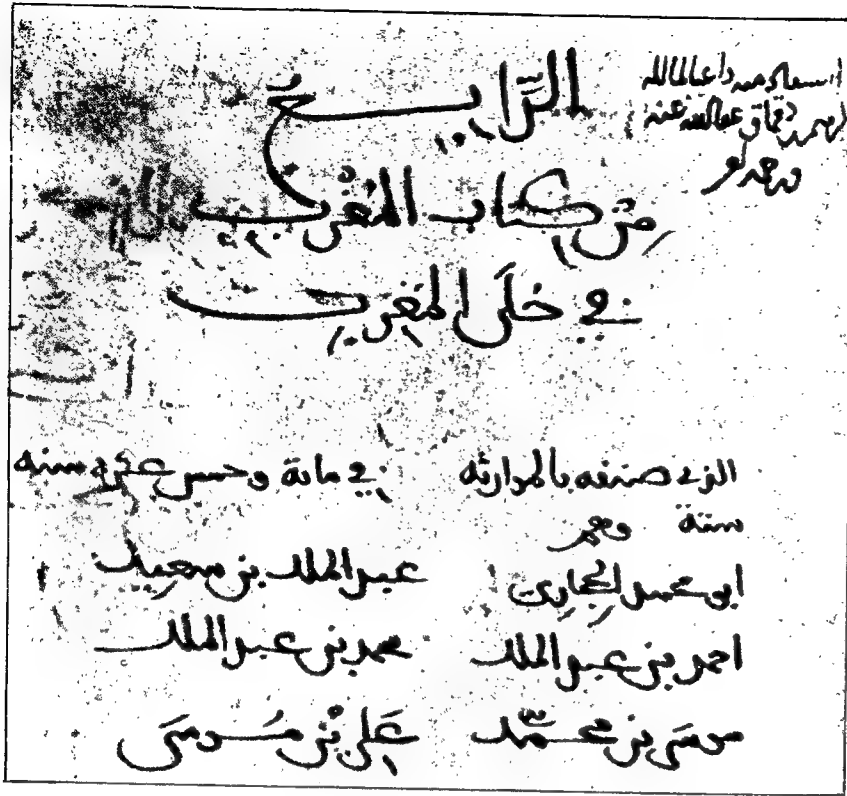 استفاد منه داعيا لمالكه
ابرهيم دقماق عفا الله عنه
الرَّابعُ
من كتاب المُغْرِب
في حُلَى المَغرِب
الذي صنفه بالموارثه في مائة وخمس عشرة سنه
ستة وهم
ابو محمد الحجاري عبد الملك بن سعيد
احمد بن عبد الملك محمد بن عبد الملك
موسَى بن محمّد عَلي بْن مُوسَى